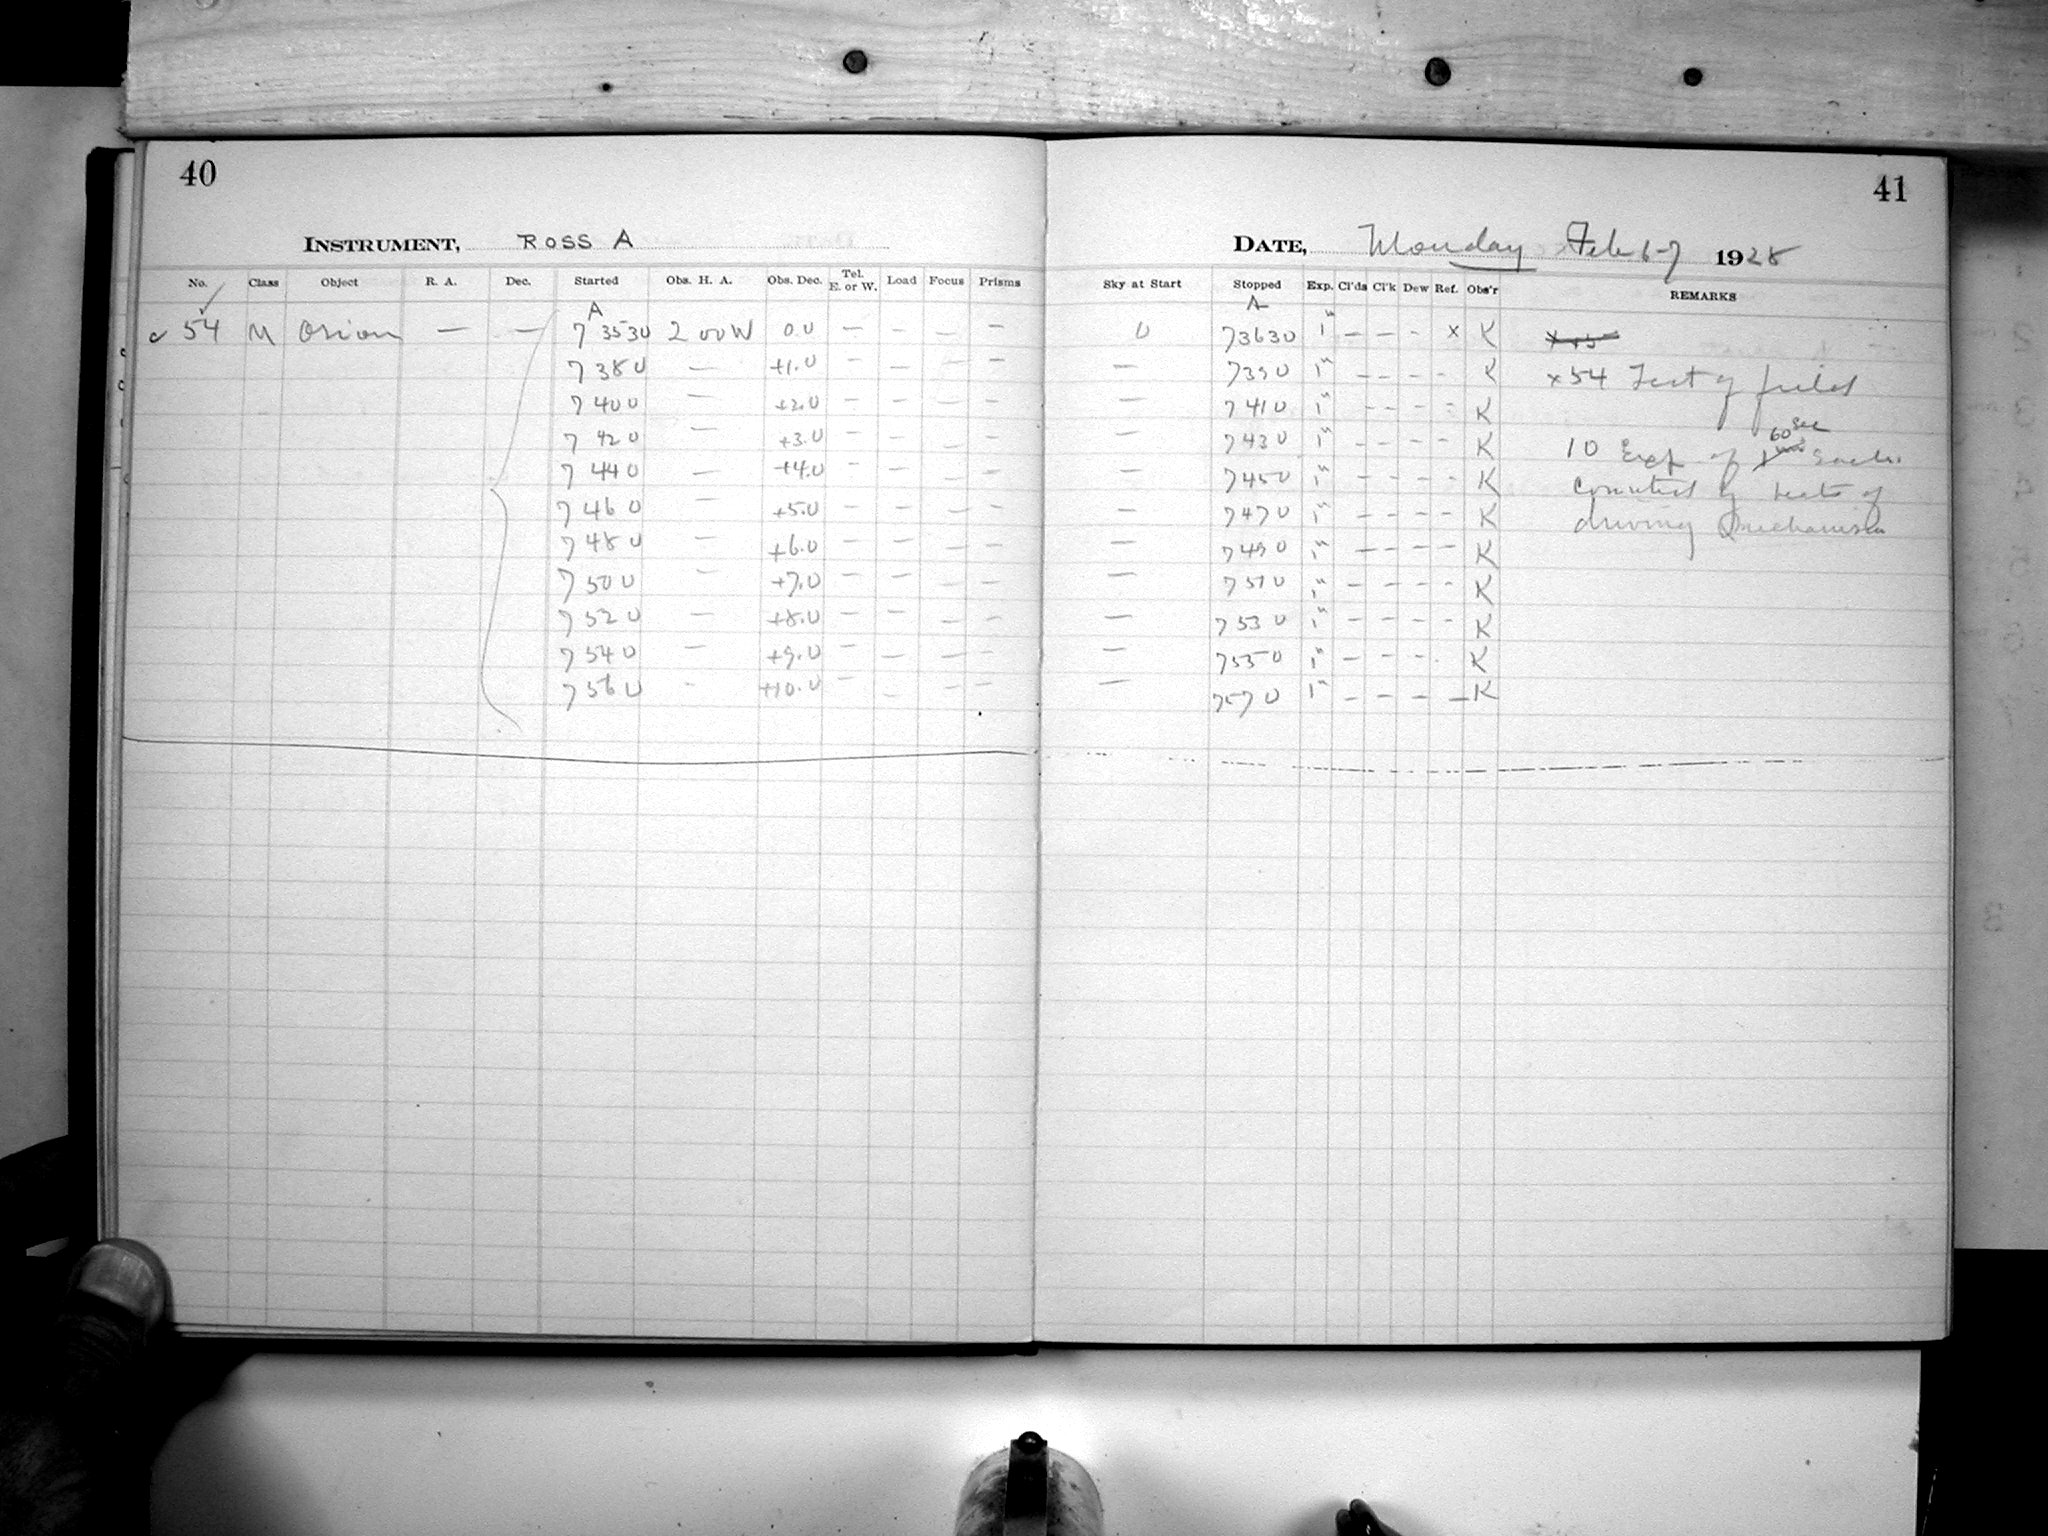 40
INSTRUMENT, ROSS A
No. Class Object R. A. Dec. Started Obs. H. A. Obs. Dec. Tel. E. or W. Load Focus Prisms
A
54 M Orion — — 7 35 30 2 00 W 0.0 — — — —
7 38 0 — +1.0 — — — —
7 40 0 — +2.0 — — — —
7 42 0 — +3.0 — — — —
7 44 0 — +4.0 — — — —
7 46 0 — +5.0 — — — —
7 48 0 — +6.0 — — — —
7 50 0 — +7.0 — — — —
7 52 0 — +8.0 — — — —
7 54 0 — +9.0 — — — —
7 56 0 - +10.0 — — — —
41
DATE, Monday Feb 6-7 1928
Sky at Start Stopped Exp. Cl'ds Cl'k Dew Ref. Obs'r REMARKS
A
0 7 36 30 1m — — - x K
— 7 39 0 1m — — - - K x 54 Test of field
— 7 41 0 1m — — — - K
— 7 43 0 1m — — — — K 10 Exp. of 60 sec each.
— 7 45 0 1m — — — - K tests of
— 7 47 0 1m — — — — K driving mechanism
— 7 49 0 1m — — — — K
— 7 51 0 1m — — — - K
— 7 53 0 1m — — — - K
— 7 55 0 1m — — — - K
— 7 57 0 1m — — — — K